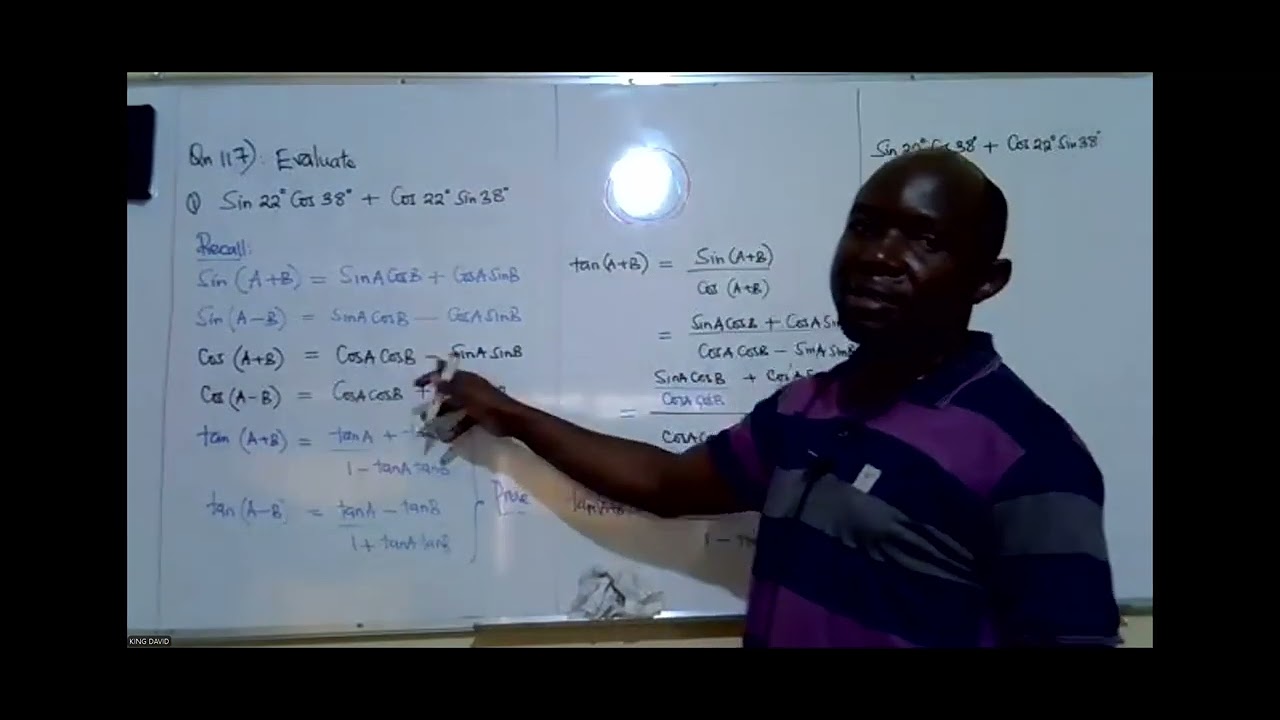 Qn 117): Evaluate
① Sin 22° Cos 38° + Cos 22° Sin 38°
Recall:
Sin (A+B) = SinA CosB + CosA SinB
Sin (A-B) = SinA CosB - CosA SinB
Cos (A+B) = CosA CosB - SinA SinB
Cos (A-B) = CosA CosB +
tan (A+B) = tanA +
1 - tanA tanB
tan (A-B) = tanA - tanB
1 + tanA tanB
Prove
tan(A+B) = Sin (A+B)
Cos (A+B)
= SinA CosB + CosA Sin
CosA CosB - SinA SinB
= SinA CosB + CosA
CosA CosB
CosA
1 -
Sin 22° Cos 38° + Cos 22° Sin 38°
KING DAVID